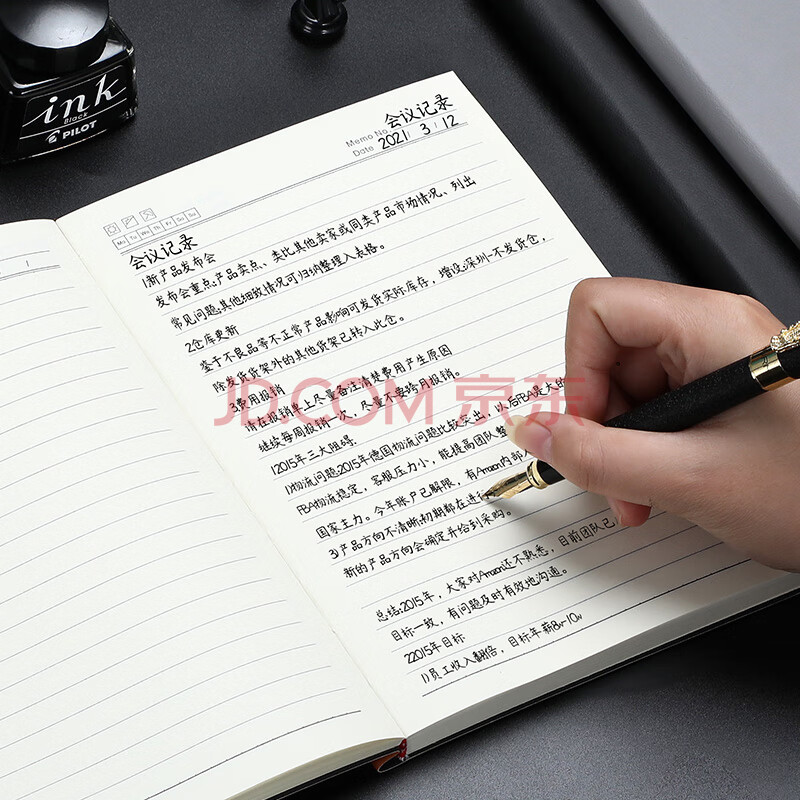 ink
Black
PILOT
Memo No. 会议记录
Date 2021 3 12
Mo Tu We Th Fr Sa Su
会议记录
1新产品发布会
发布会重点:产品卖点、类比其他卖家或同类产品市场情况、列出
常见问题.其他细致情况可归纳整理入表格。
2仓库更新
鉴于不良品等不正常产品影响可发货实际库存，增设:深圳-不发货仓，
除发货货架外的其他货架已转入此仓。
3费用报销
请在报销单上尽量备注清楚费用产生原因
继续每周报销一次，尽量不要跨月报销。
12015年三大阻碍:
1)物流问题:2015年德国物流问题比较突出，以后FBA是大的
FBA物流稳定，客服压力小，能提高团队整
国家主力。今年账户已解限，有Amazon内部人
3)产品方向不清晰初期都在进行
新的产品方向会确定并给到采购。
总结:2015年，大家对Amazon还不熟悉，目前团队已
目标一致，有问题及时有效地沟通。
22015年目标
1)员工收入翻倍，目标年薪8w-10w
JD.COM 京东